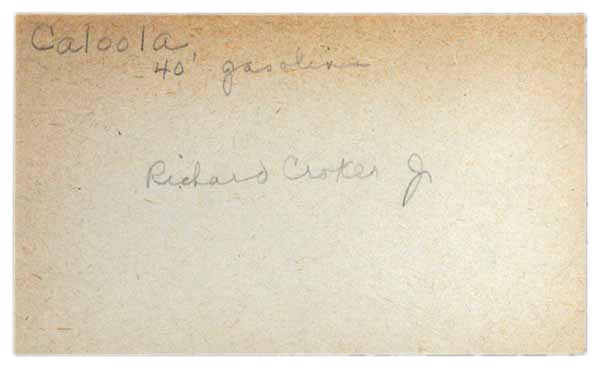 Caloola
40' gasoline
Richard Croker Jr